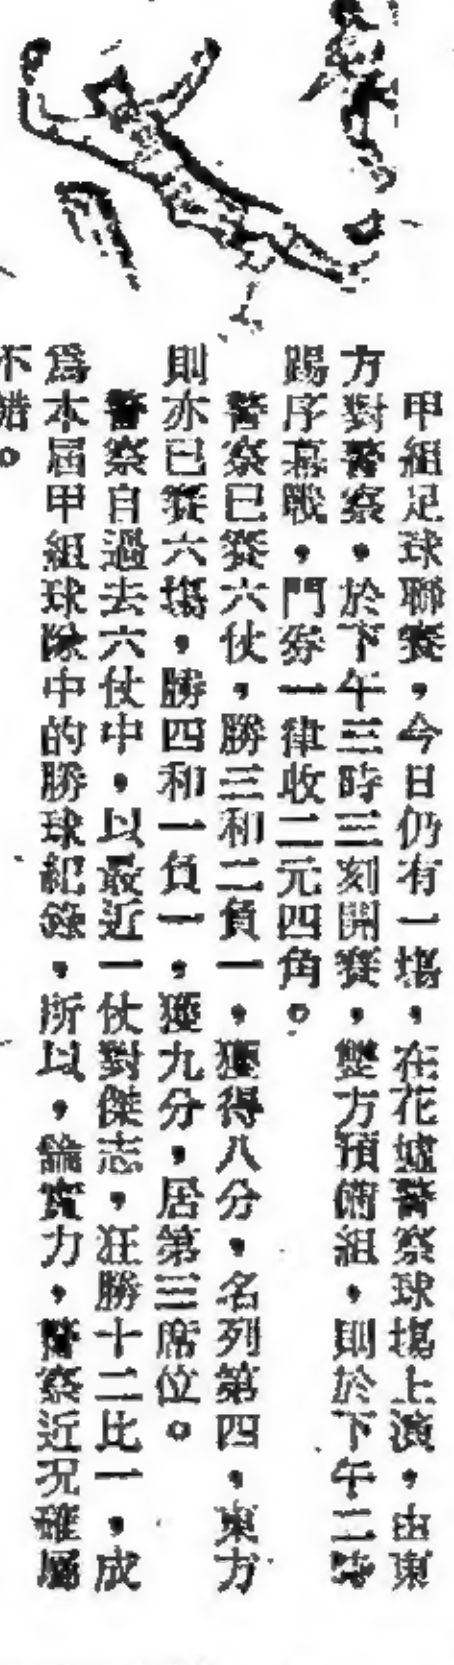 甲組足球聯賽，今日仍有一塲，在花墟警察球塲上演，由東
方對警察，於下午三時三刻開賽，雙方預備組，則於下午二時
踢序幕戰，門券一律收二元四角。
警察已賽六仗，勝三和二負一，獲得八分，名列第四，東方
則亦已賽六塲，勝四和一負一，獲九分，居第三席位。
警察自過去六仗中，以最近一仗對傑志，狂勝十二比一，成
爲本屆甲組球隊中的勝球紀錄，所以，論實力，警察近況確屬
不錯。